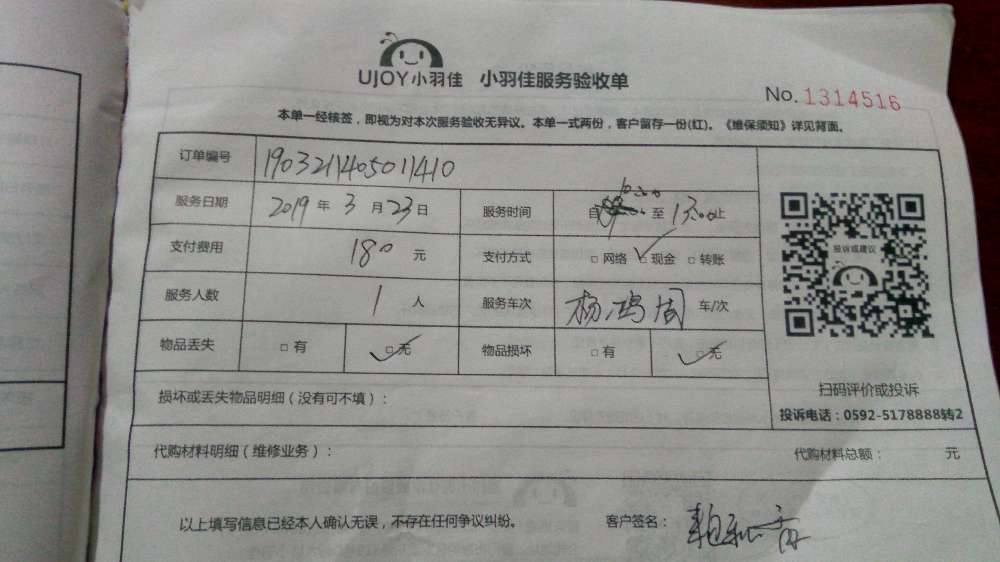 UJOY小羽佳 小羽佳服务验收单
No.1314516
本单一经核签，即视为对本次服务验收无异议。本单一式两份，客户留存一份(红)。《维保须知》详见背面。
订单编号 190321405011410
服务日期 2019年3月23日 服务时间 自 10:00 至 13:00止
投诉或建议
支付费用 180元 支付方式 □网络 ☑现金 □转账
服务人数 1人 服务车次 杨鸿周 车/次
物品丢失 □有 ☑无 物品损坏 □有 ☑无
扫码评价或投诉
损坏或丢失物品明细（没有可不填）：
投诉电话：0592-5178888转2
代购材料明细（维修业务）： 代购材料总额： 元
以上填写信息已经本人确认无误，不存在任何争议纠纷。 客户签名：